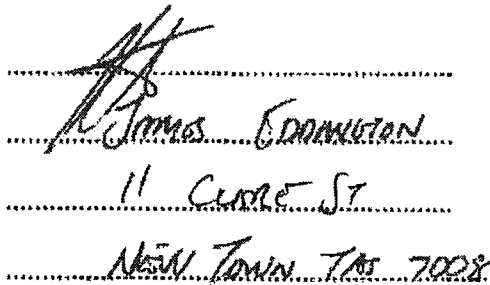 James Eddington
11 Clare St
New Town Tas 7008